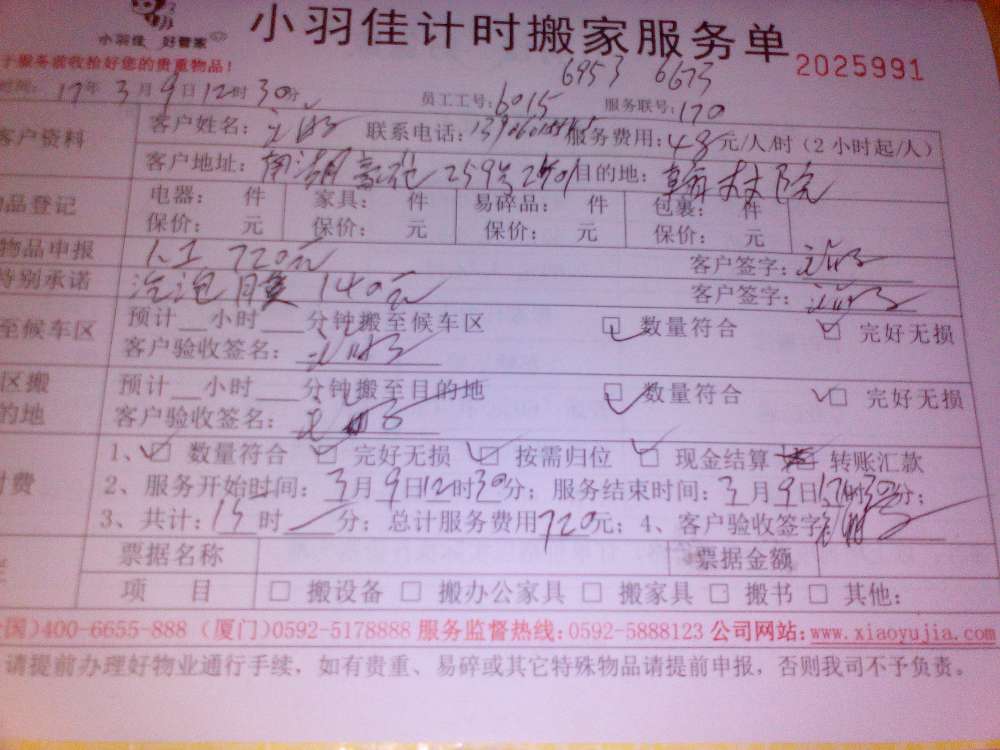 小羽佳 好管家
小羽佳计时搬家服务单
2025991
于服务前收拾好您的贵重物品!
6953 6673
时间: 17年3月9日12时30分 员工工号:6015 服务联号:170
客户资料 客户姓名: 联系电话: 服务费用:48元/人/时(2小时起/人)
客户地址:南湖豪苑259号 目的地:翰林院
物品登记 电器: 件 家具: 件 易碎品: 件 包裹: 件
保价: 元 保价: 元 保价: 元 保价: 元
物品申报 人工 720元 客户签字:
特别承诺 汽泡膜 140元 客户签字:
至候车区 预计__小时___分钟搬至候车区 □ 数量符合 □ 完好无损
客户验收签名:
区搬 预计__小时___分钟搬至目的地 □ 数量符合 □ 完好无损
的地 客户验收签名:
付费 1、□ 数量符合 □ 完好无损 □ 按需归位 □ 现金结算 □ 转账汇款
2、服务开始时间:3月9日12时30分;服务结束时间:3月9日17时30分;
3、共计:15时 分;总计服务费用720元;4、客户验收签字
票据名称 票据金额
项 目 □ 搬设备 □ 搬办公家具 □ 搬家具 □ 搬书 □ 其他:
国)400-6655-888 (厦门)0592-5178888 服务监督热线:0592-5888123 公司网站:www.xiaoyujia.com
请提前办理好物业通行手续,如有贵重、易碎或其它特殊物品请提前申报,否则我司不予负责。